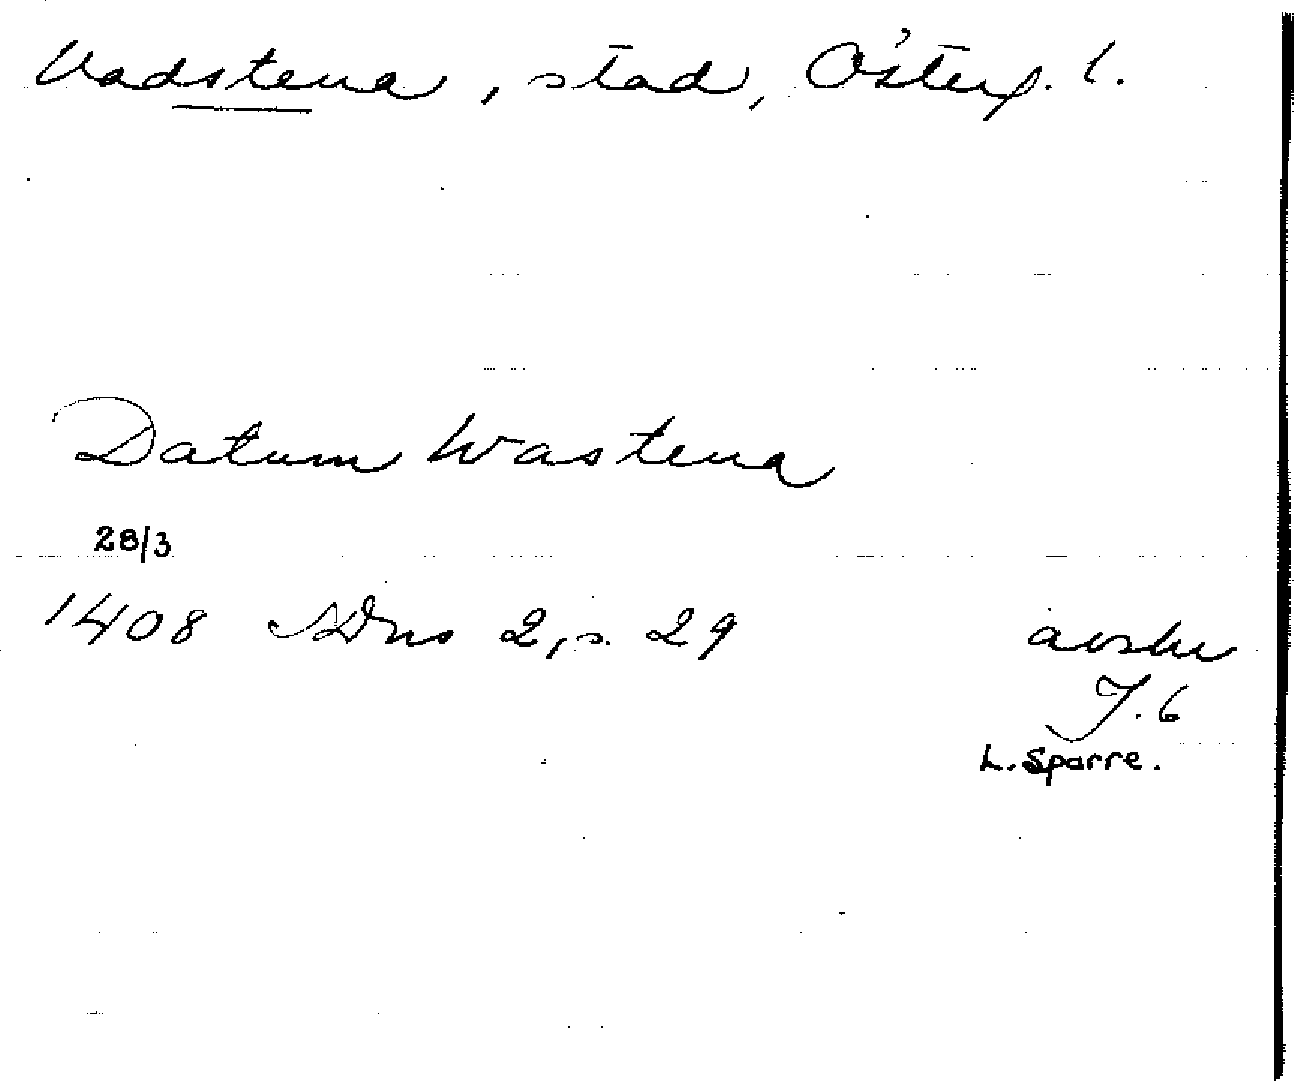 Vadstena, stad, Österg. l.
Datum Wastena
28/3
1408 SDns 2, s. 29
avskr
J. 6
L. Sparre.